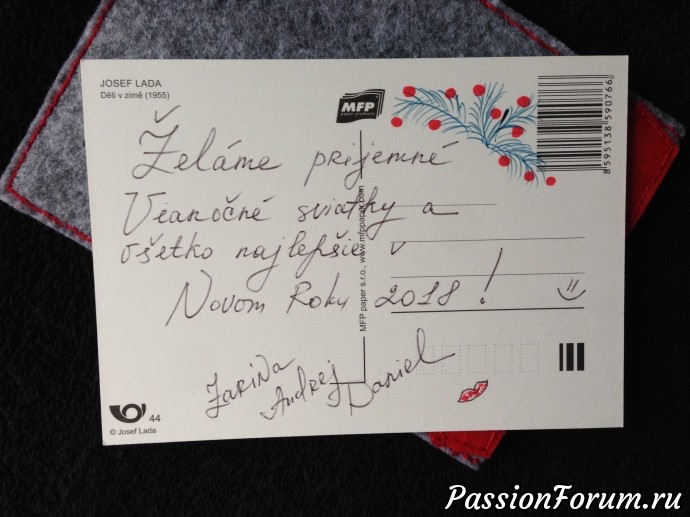 JOSEF LADA
Děti v zimě (1955)
MFP
paper products
8595138590766
Želáme prijemné
Vianočné sviatky a
všetko najlepšie v
Novom Roku 2018!
MFP paper s.r.o., www.mfppaper.com
Zarina
Andrej
Daniel
44
© Josef Lada
PassionForum.ru